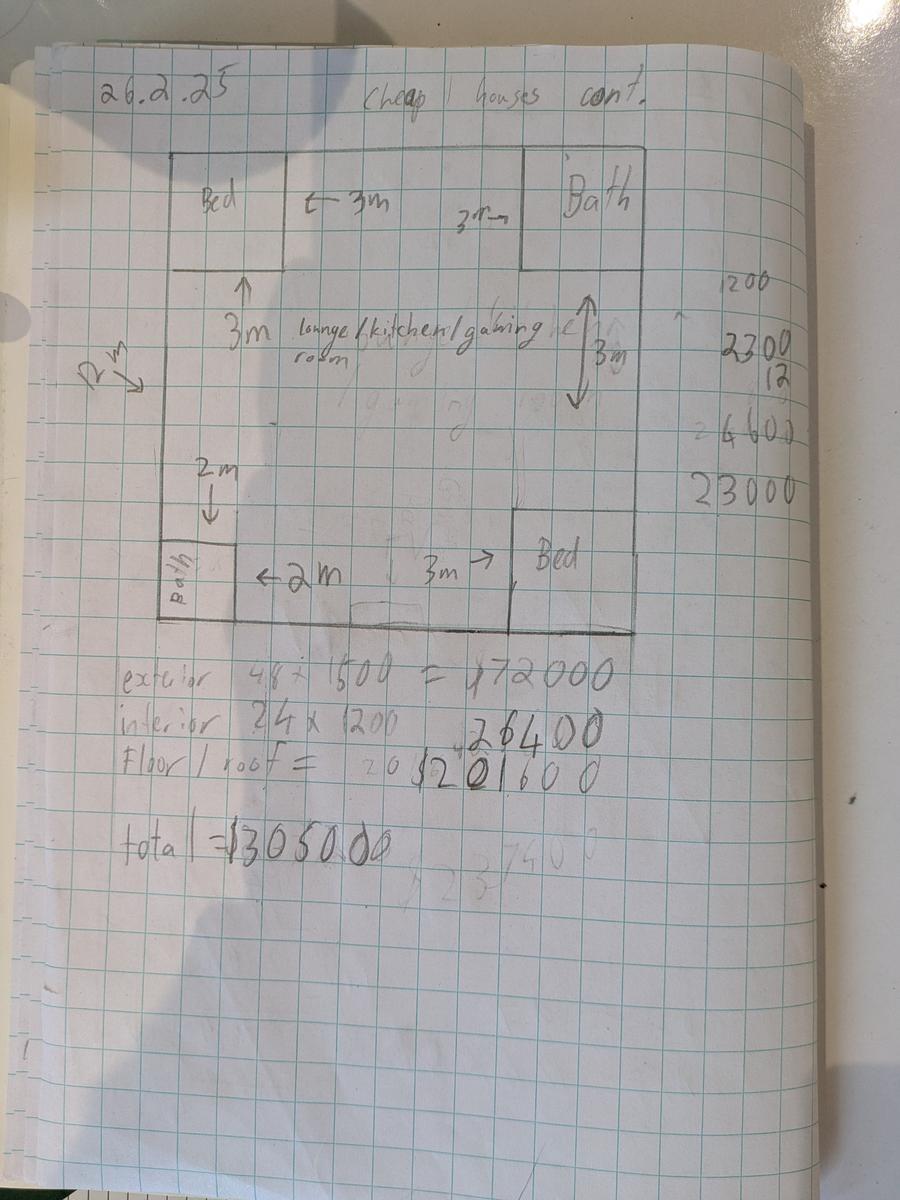 26.2.25 Cheap houses cont.
Bed
← 3m
3m
Bath
1200
3m
lounge/kitchen/gaming
room
3m
2300
12
12m
4600
23000
2m
Bath
← 2m
3m →
Bed
exterior 48 x 1500 = $72000
interior 24 x 1200 26400
Floor / roof = 20 $201600
total = $305000
$237400